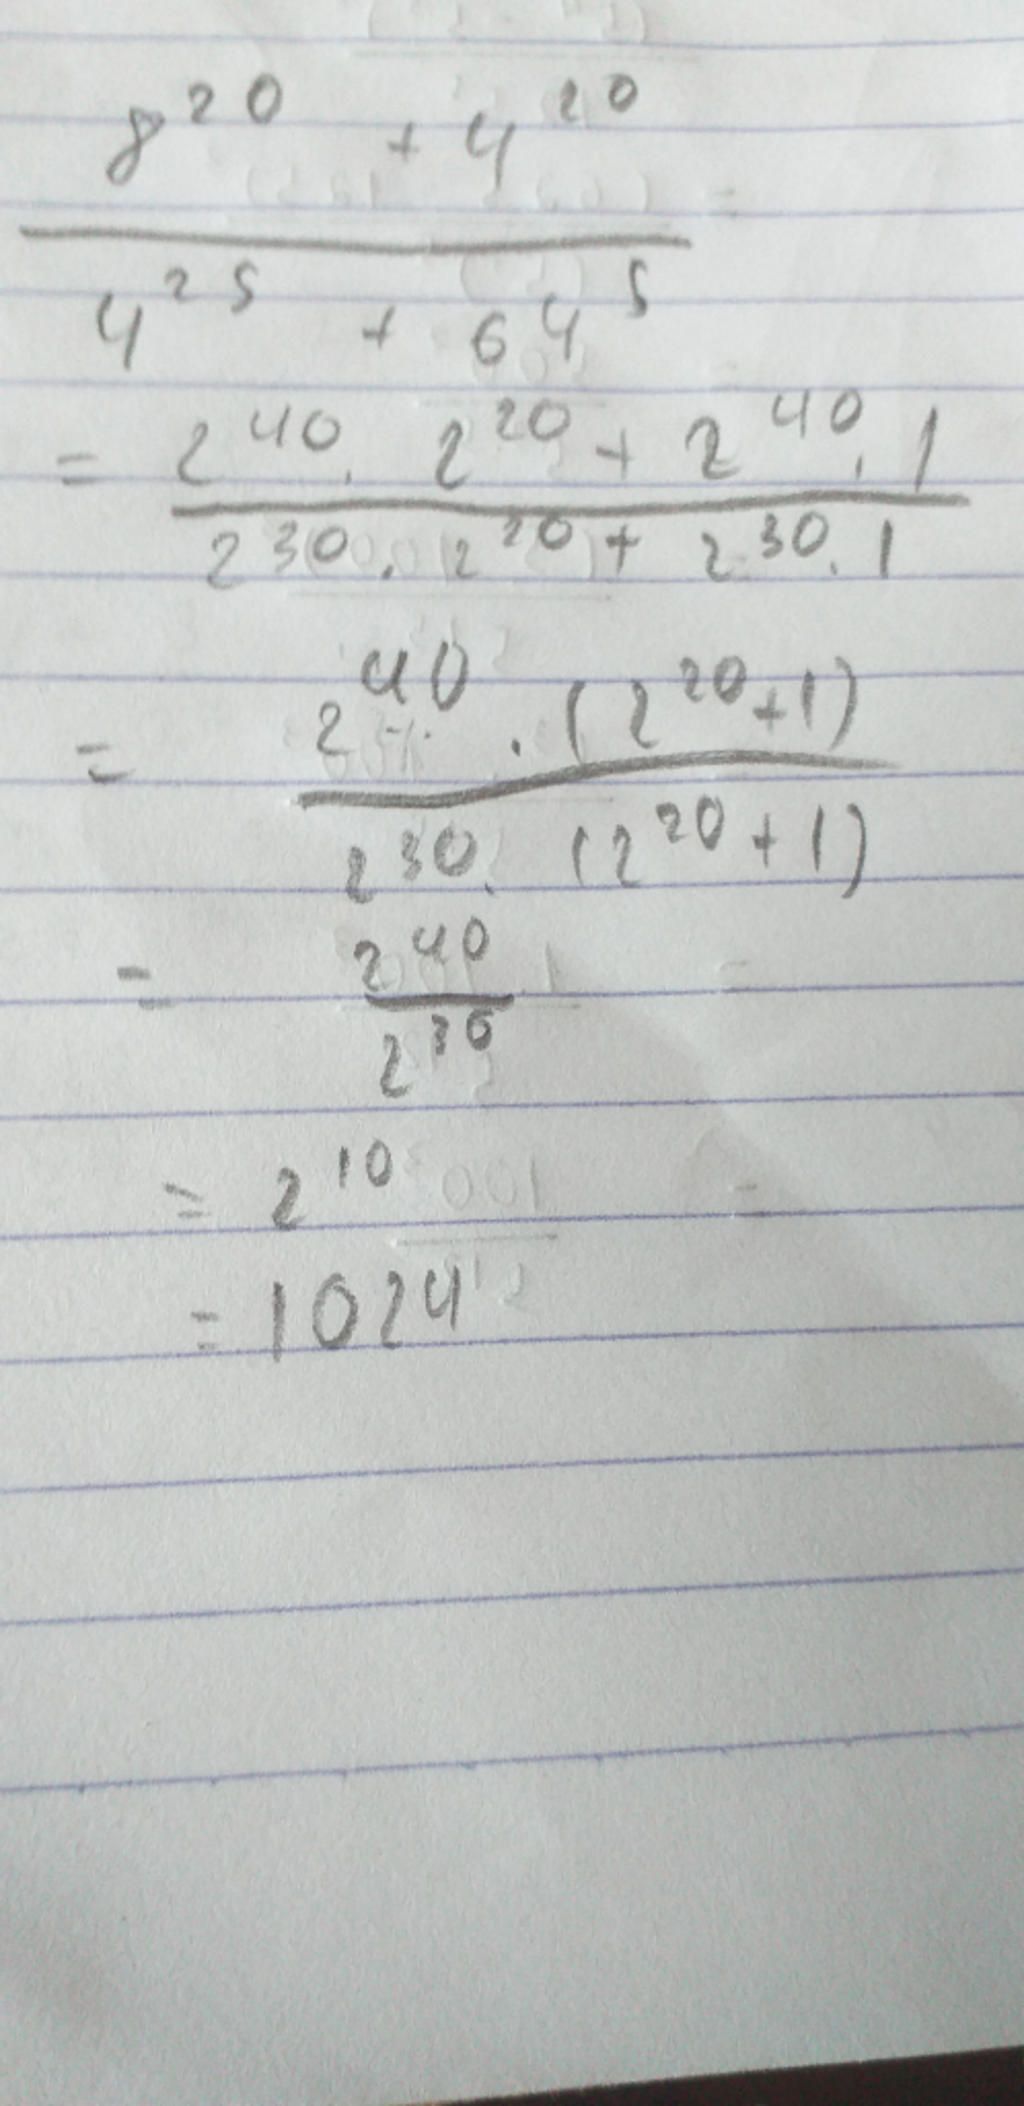 8²⁰ + 4²⁰ =
4²⁵ + 64⁵
= 2⁴⁰. 2²⁰ + 2⁴⁰. 1
2³⁰. 2²⁰ + 2³⁰. 1
= 2⁴⁰ . (2²⁰+1)
2³⁰. (2²⁰+1)
= 2⁴⁰
2³⁰
= 2¹⁰
= 1024